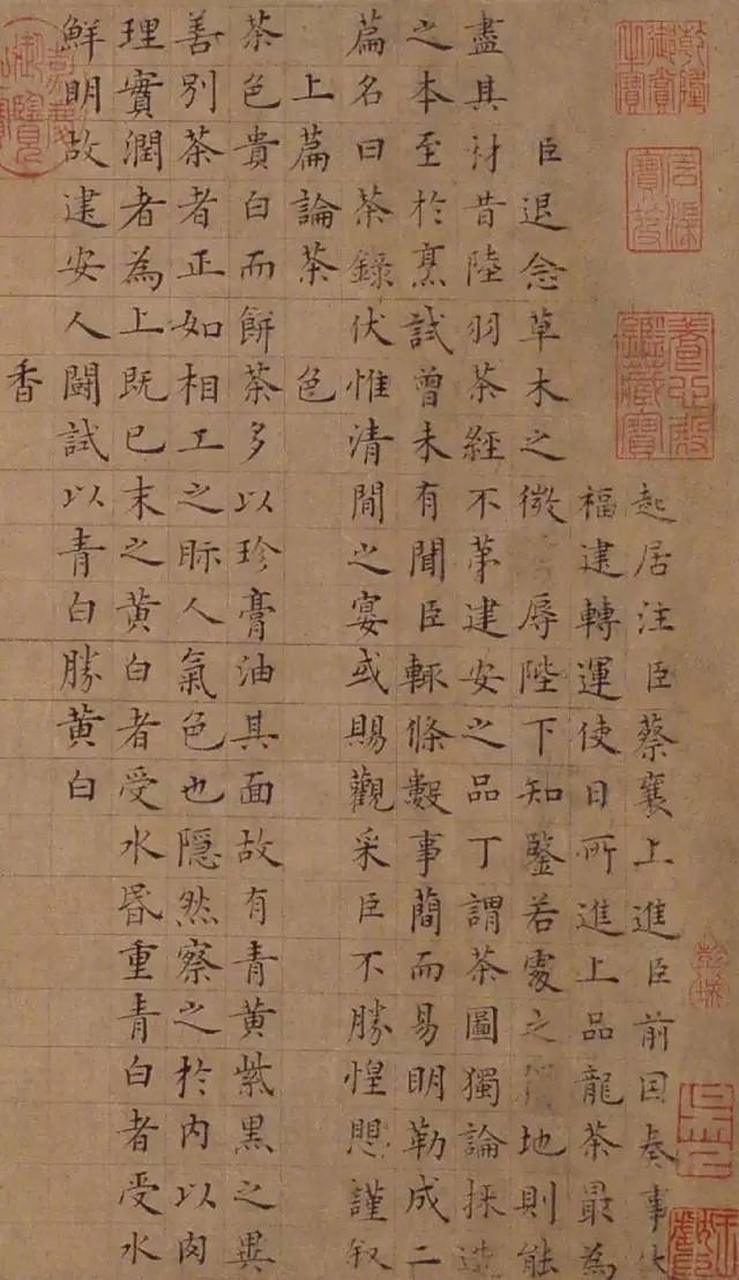 乾隆御賞之寶
石渠寶笈
養心殿鑑藏寶
起居注臣蔡襄上進臣前因奏事伏
福建轉運使日所進上品龍茶最為
臣退念草木之微辱陛下知鑒若處之地則能
盡其材昔陸羽茶經不第建安之品丁謂茶圖獨論採造
之本至於烹試曾未有聞臣輒條數事簡而易明勒成二
篇名曰茶錄伏惟清閒之宴或賜觀采臣不勝惶愳謹叙
上篇論茶 色
茶色貴白而餅茶多以珍膏油其面故有青黃紫黑之異
善別茶者正如相工之眎人氣色也隱然察之於內以肉
理實潤者為上既已末之黃白者受水昬重青白者受水
鮮明故建安人鬭試以青白勝黃白
香
嘉慶御覽